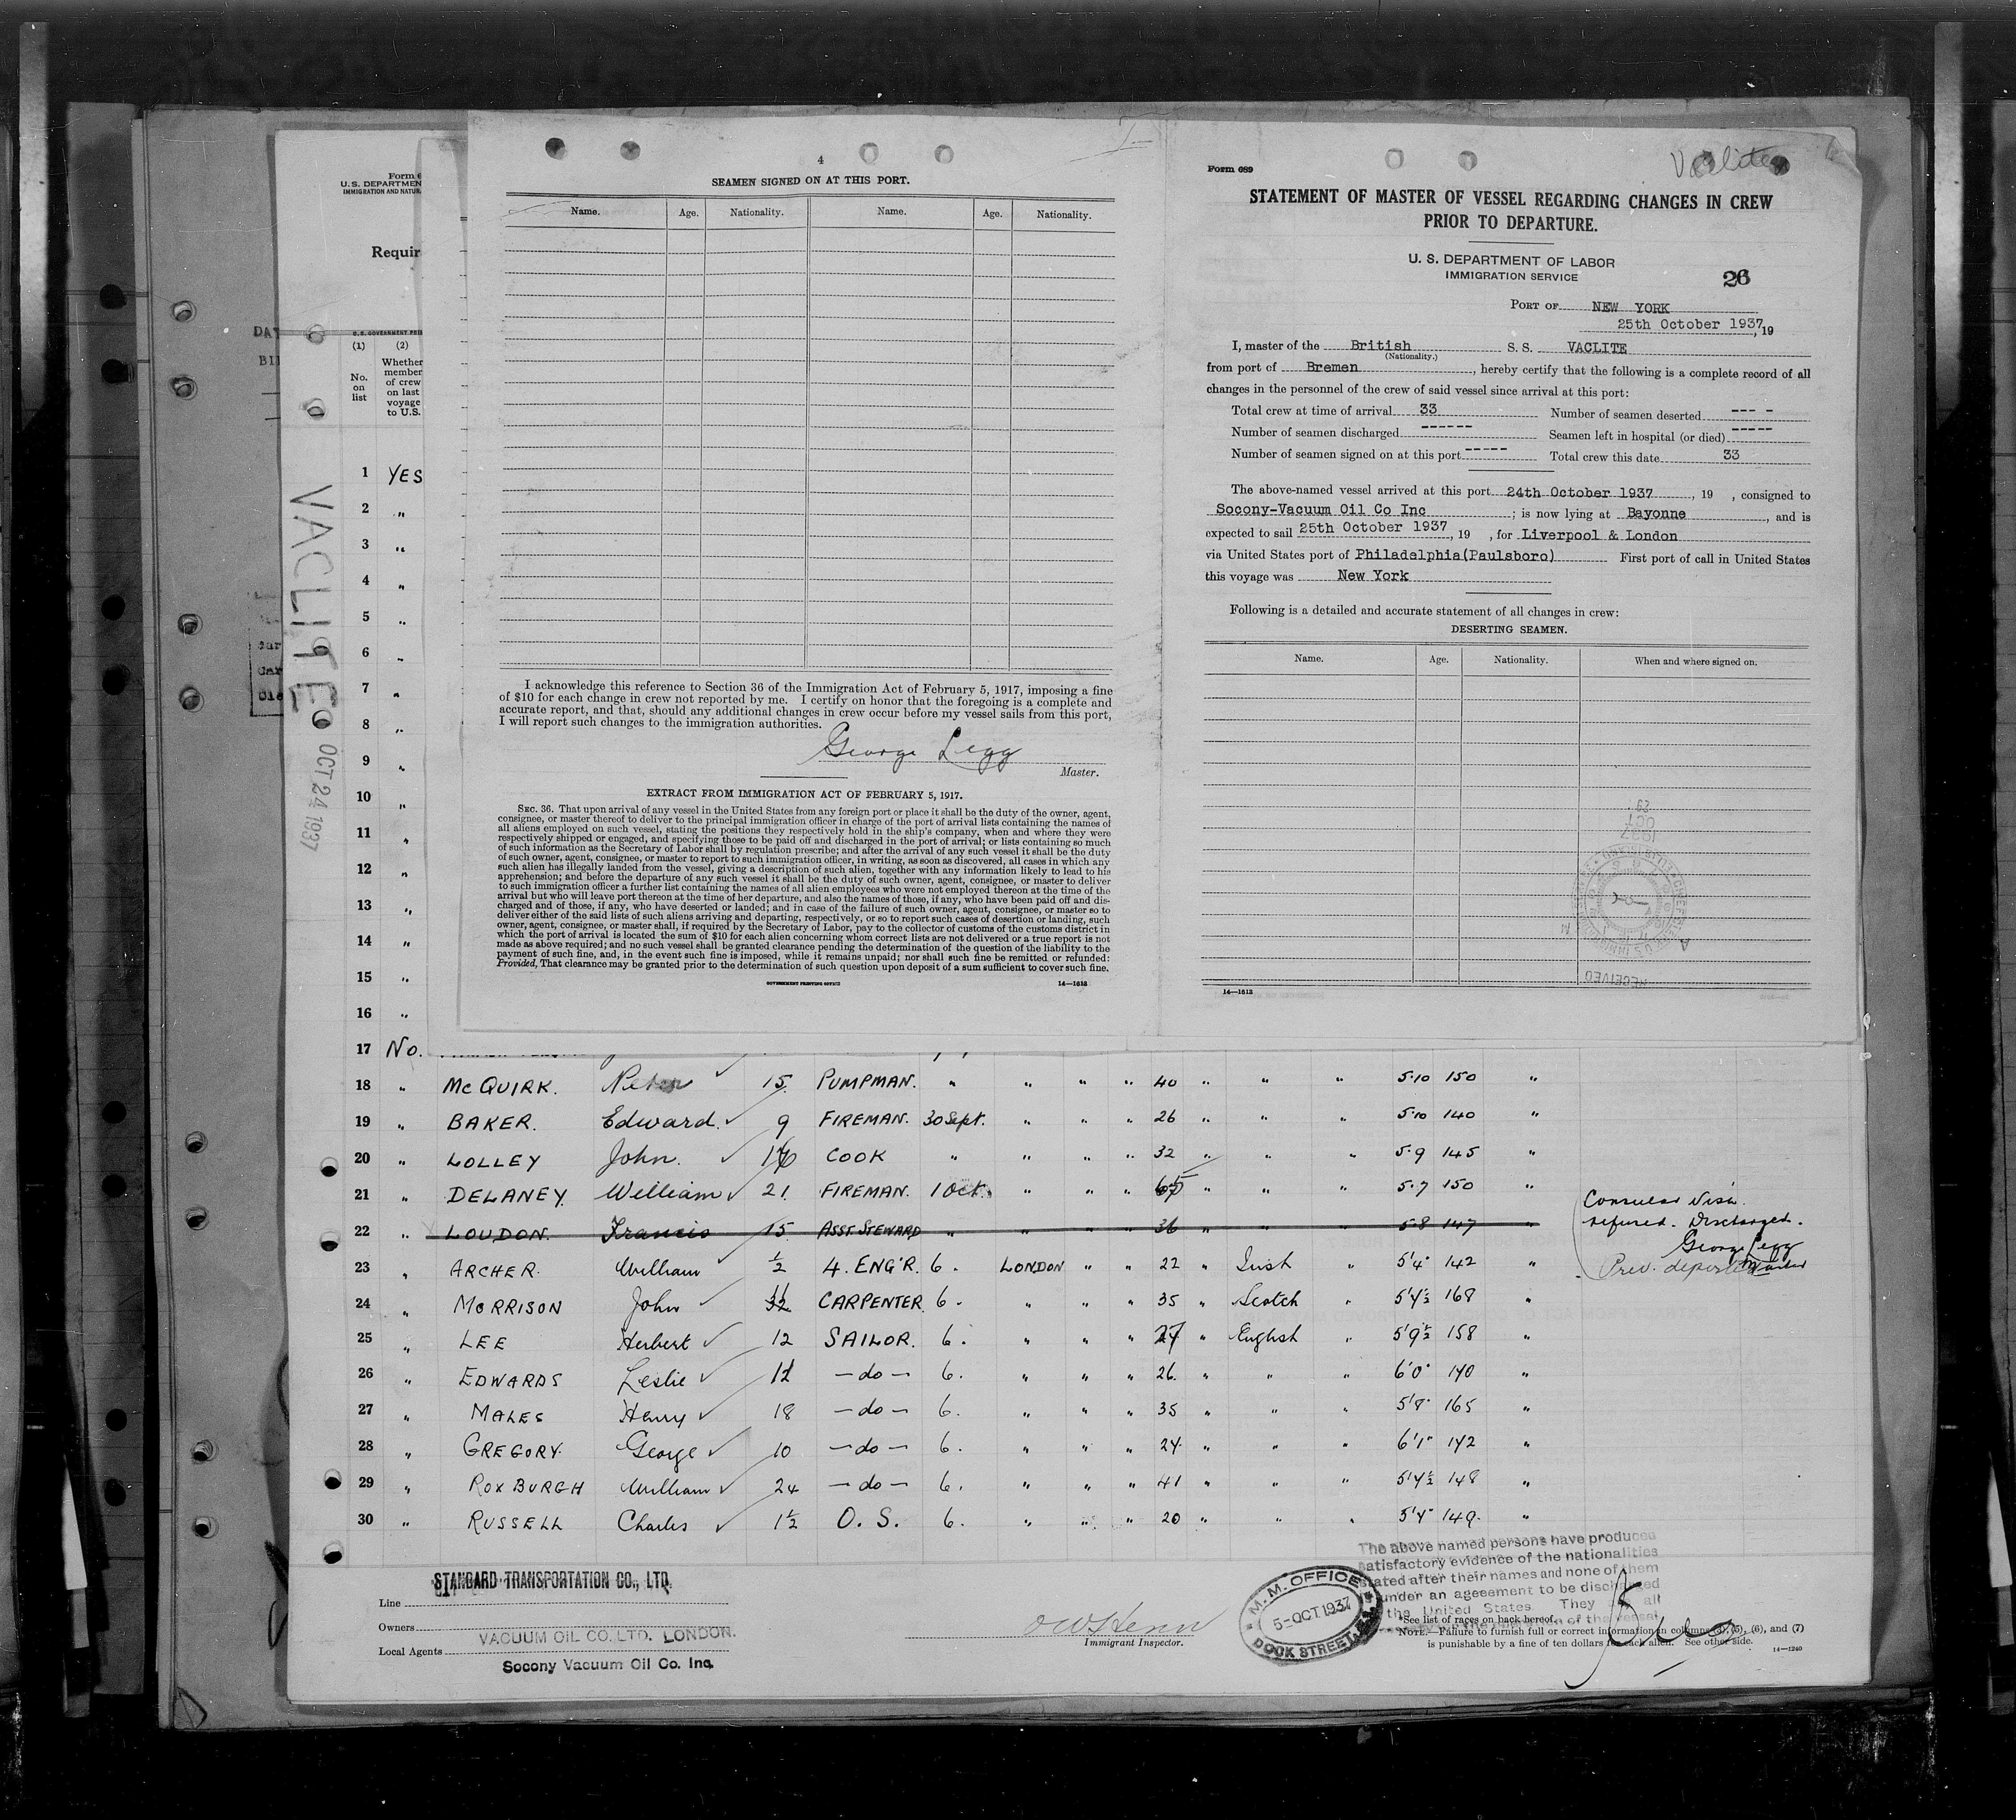 4
SEAMEN SIGNED ON AT THIS PORT.
Name. Age. Nationality. Name. Age. Nationality.
I acknowledge this reference to Section 36 of the Immigration Act of February 5, 1917, imposing a fine
of $10 for each change in crew not reported by me. I certify on honor that the foregoing is a complete and
accurate report, and that, should any additional changes in crew occur before my vessel sails from this port,
I will report such changes to the immigration authorities.
George Legg
Master.
EXTRACT FROM IMMIGRATION ACT OF FEBRUARY 5, 1917.
SEC. 36. That upon arrival of any vessel in the United States from any foreign port or place it shall be the duty of the owner, agent,
consignee, or master thereof to deliver to the principal immigration officer in charge of the port of arrival lists containing the names of
all aliens employed on such vessel, stating the positions they respectively hold in the ship's company, when and where they were
respectively shipped or engaged, and specifying those to be paid off and discharged in the port of arrival; or lists containing so much
of such information as the Secretary of Labor shall by regulation prescribe; and after the arrival of any such vessel it shall be the duty
of such owner, agent, consignee, or master to report to such immigration officer, in writing, as soon as discovered, all cases in which any
such alien has illegally landed from the vessel, giving a description of such alien, together with any information likely to lead to his
apprehension; and before the departure of any such vessel it shall be the duty of such owner, agent, consignee, or master to deliver
to such immigration officer a further list containing the names of all alien employees who were not employed thereon at the time of the
arrival but who will leave port thereon at the time of her departure, and also the names of those, if any, who have been paid off and dis-
charged and of those, if any, who have deserted or landed; and in case of the failure of such owner, agent, consignee, or master so to
deliver either of the said lists of such aliens arriving and departing, respectively, or so to report such cases of desertion or landing, such
owner, agent, consignee, or master shall, if required by the Secretary of Labor, pay to the collector of customs of the customs district in
which the port of arrival is located the sum of $10 for each alien concerning whom correct lists are not delivered or a true report is not
made as above required; and no such vessel shall be granted clearance pending the determination of the question of the liability to the
payment of such fine, and, in the event such fine is imposed, while it remains unpaid; nor shall such fine be remitted or refunded:
Provided, That clearance may be granted prior to the determination of such question upon deposit of a sum sufficient to cover such fine.
GOVERNMENT PRINTING OFFICE 14—1613
Form 689
Vaclite
STATEMENT OF MASTER OF VESSEL REGARDING CHANGES IN CREW
PRIOR TO DEPARTURE.
U. S. DEPARTMENT OF LABOR
IMMIGRATION SERVICE
26
PORT OF NEW YORK
25th October 1937, 19
I, master of the British S. S. VACLITE
(Nationality.)
from port of Bremen, hereby certify that the following is a complete record of all
changes in the personnel of the crew of said vessel since arrival at this port:
Total crew at time of arrival 33 Number of seamen deserted --- -
Number of seamen discharged ------ Seamen left in hospital (or died) -----
Number of seamen signed on at this port ----- Total crew this date 33
The above-named vessel arrived at this port 24th October 1937, 19 , consigned to
Socony-Vacuum Oil Co Inc ; is now lying at Bayonne, and is
expected to sail 25th October 1937, 19 , for Liverpool & London
via United States port of Philadelphia(Paulsboro) First port of call in United States
this voyage was New York
Following is a detailed and accurate statement of all changes in crew:
DESERTING SEAMEN.
Name. Age. Nationality. When and where signed on.
1937
OCT
RECEIVED
14—1613
Form 6
U. S. DEPARTMEN
IMMIGRATION AND NATUR
Requir
DAT
(1) (2)
No. on list
Whether member of crew on last voyage to U.S.
VACLITE OCT 24 1937
1 YES
2 "
3 "
4 "
5 "
6 "
7 "
8 "
9 "
10 "
11 "
12 "
13 "
14 "
15 "
16 "
17 No.
18 " McQUIRK. Peter 15. PUMPMAN. " " " " 40 " " " 5·10 150 "
19 " BAKER. Edward. 9 FIREMAN. 30 Sept. " " " 26 " " " 5·10 140 "
20 " LOLLEY John. COOK " " " " 32 " " " 5·9 145 "
21 " DELANEY. William 21. FIREMAN. 1 Oct. " " " " " " 5·7 150 "
22 " LOUDON. Francis 15. ASST. STEWARD " " " " 36 " " " 5·8 147 "
Consular Visa
refused. Discharged.
George Legg
Master
Prev. deported
23 " ARCHER. William 1/2 4. ENG'R. 6. LONDON " " 22 " Irish " 5'4" 142 "
24 " MORRISON John CARPENTER 6. " " " 35 " Scotch " 5'4½ 168 "
25 " LEE Herbert 12 SAILOR. 6. " " " 27 " English " 5'9½ 158 "
26 " EDWARDS Leslie 11 —do— 6. " " " 26. " " " 6'0" 140 "
27 " MALES Henry 18 —do— 6. " " " 35 " " " 5'8" 165 "
28 " GREGORY. George 10 —do— 6. " " " 24. " " " 6'1" 142 "
29 " ROXBURGH William 24 —do— 6. " " " 41 " " " 5'4½ 148 "
30 " RUSSELL Charles 1½ O. S. 6. " " " 20 " " " 5'4" 149. "
The above named persons have produced
satisfactory evidence of the nationalities
stated after their names and none of them
under an agreement to be discharged
the United States. They all
of the vessel
STANDARD TRANSPORTATION CO., LTD.
Line
Owners VACUUM OIL CO. LTD. LONDON.
Local Agents Socony Vacuum Oil Co. Inc.
Immigrant Inspector.
M. M. OFFICE
5-OCT 1937
DOCK STREET, E.1.
*See list of races on back hereof.
NOTE.—Failure to furnish full or correct information in columns (5), (6), and (7)
is punishable by a fine of ten dollars for each alien. See other side.
14—1240